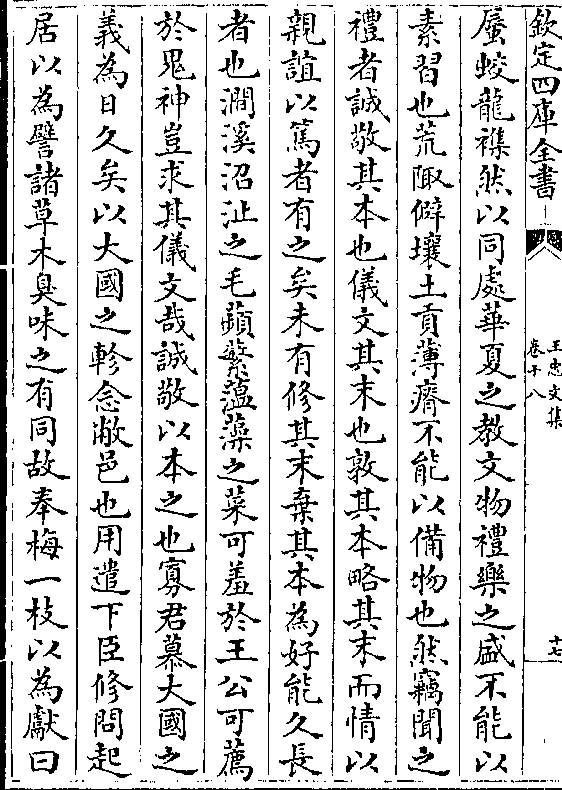 欽定四庫全書
王忠文集
卷十八
十七
蜃蛟龍襍然以同處華夏之教文物禮樂之盛不能以
素習也荒陬僻壤土貢薄瘠不能以備物也然竊聞之
禮者誠敬其本也儀文其末也敦其本略其末而情以
親誼以篤者有之矣未有修其末棄其本為好能久長
者也澗溪沼沚之毛蘋蘩薀藻之菜可羞於王公可薦
於鬼神豈求其儀文哉誠敬以本之也寡君慕大國之
義為日久矣以大國之軫念敝邑也用遣下臣修問起
居以為譬諸草木臭味之有同故奉梅一枝以為獻曰